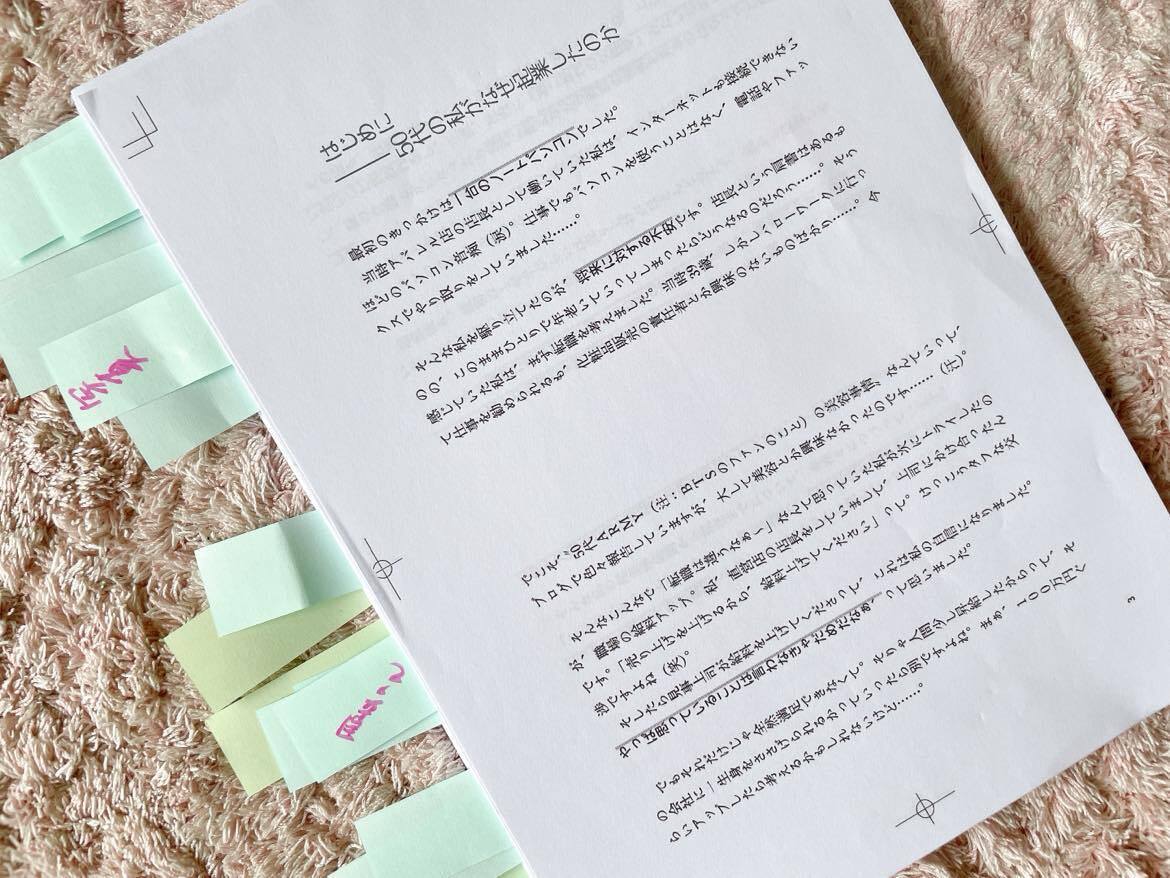 はじめに
――50代の私がなぜ起業したのか
最初のきっかけは一台のノートパソコンでした。
当時アパレル店の店長として働いていた私は、インターネットも接続できない
ほどのパソコン音痴（涙）。仕事でもパソコンを使うことはなく、電話やファッ
クスでやり取りをしていました……。
そんな私を駆り立てたのが、将来に対する不安です。店長という肩書はあるも
のの、このままひとりで年老いていってしまったらどうなるのだろう……。そう
感じていた私は、まず転職を考えました。当時39歳、しかしハローワークに行っ
て仕事を勧められるも、化粧品販売の責任者とか興味のないものばかり……。今
でこそ、“50代ARMY（注：BTSのファンのこと）の美容事情”なんていって、
ブログで色々報告していますが、大して美容とか興味なかったのです……（汗）。
そんなこんなで「転職は違うなぁ～」なんて思っていた私が次にトライしたの
が、職場の給料アップ。私、直営店の店長をしていまして、上司にかけ合ったん
です。「売り上げを上げるから、給料上げてください」って。けっこうタフな交
渉ですよね（笑）。
そしたら見事上司が給料を上げてくださって、これは私の自信になりました。
やっぱ思っていることは言わなきゃだめだなぁ、って思いました。
でもそれだけじゃ全然満足できなくて。そりゃ人間少し昇給したからって、そ
の会社に一生身をささげられるかっていったら別ですよね。まぁ、１００万円く
らいアップしたら考えるかもしれないけど……。
3